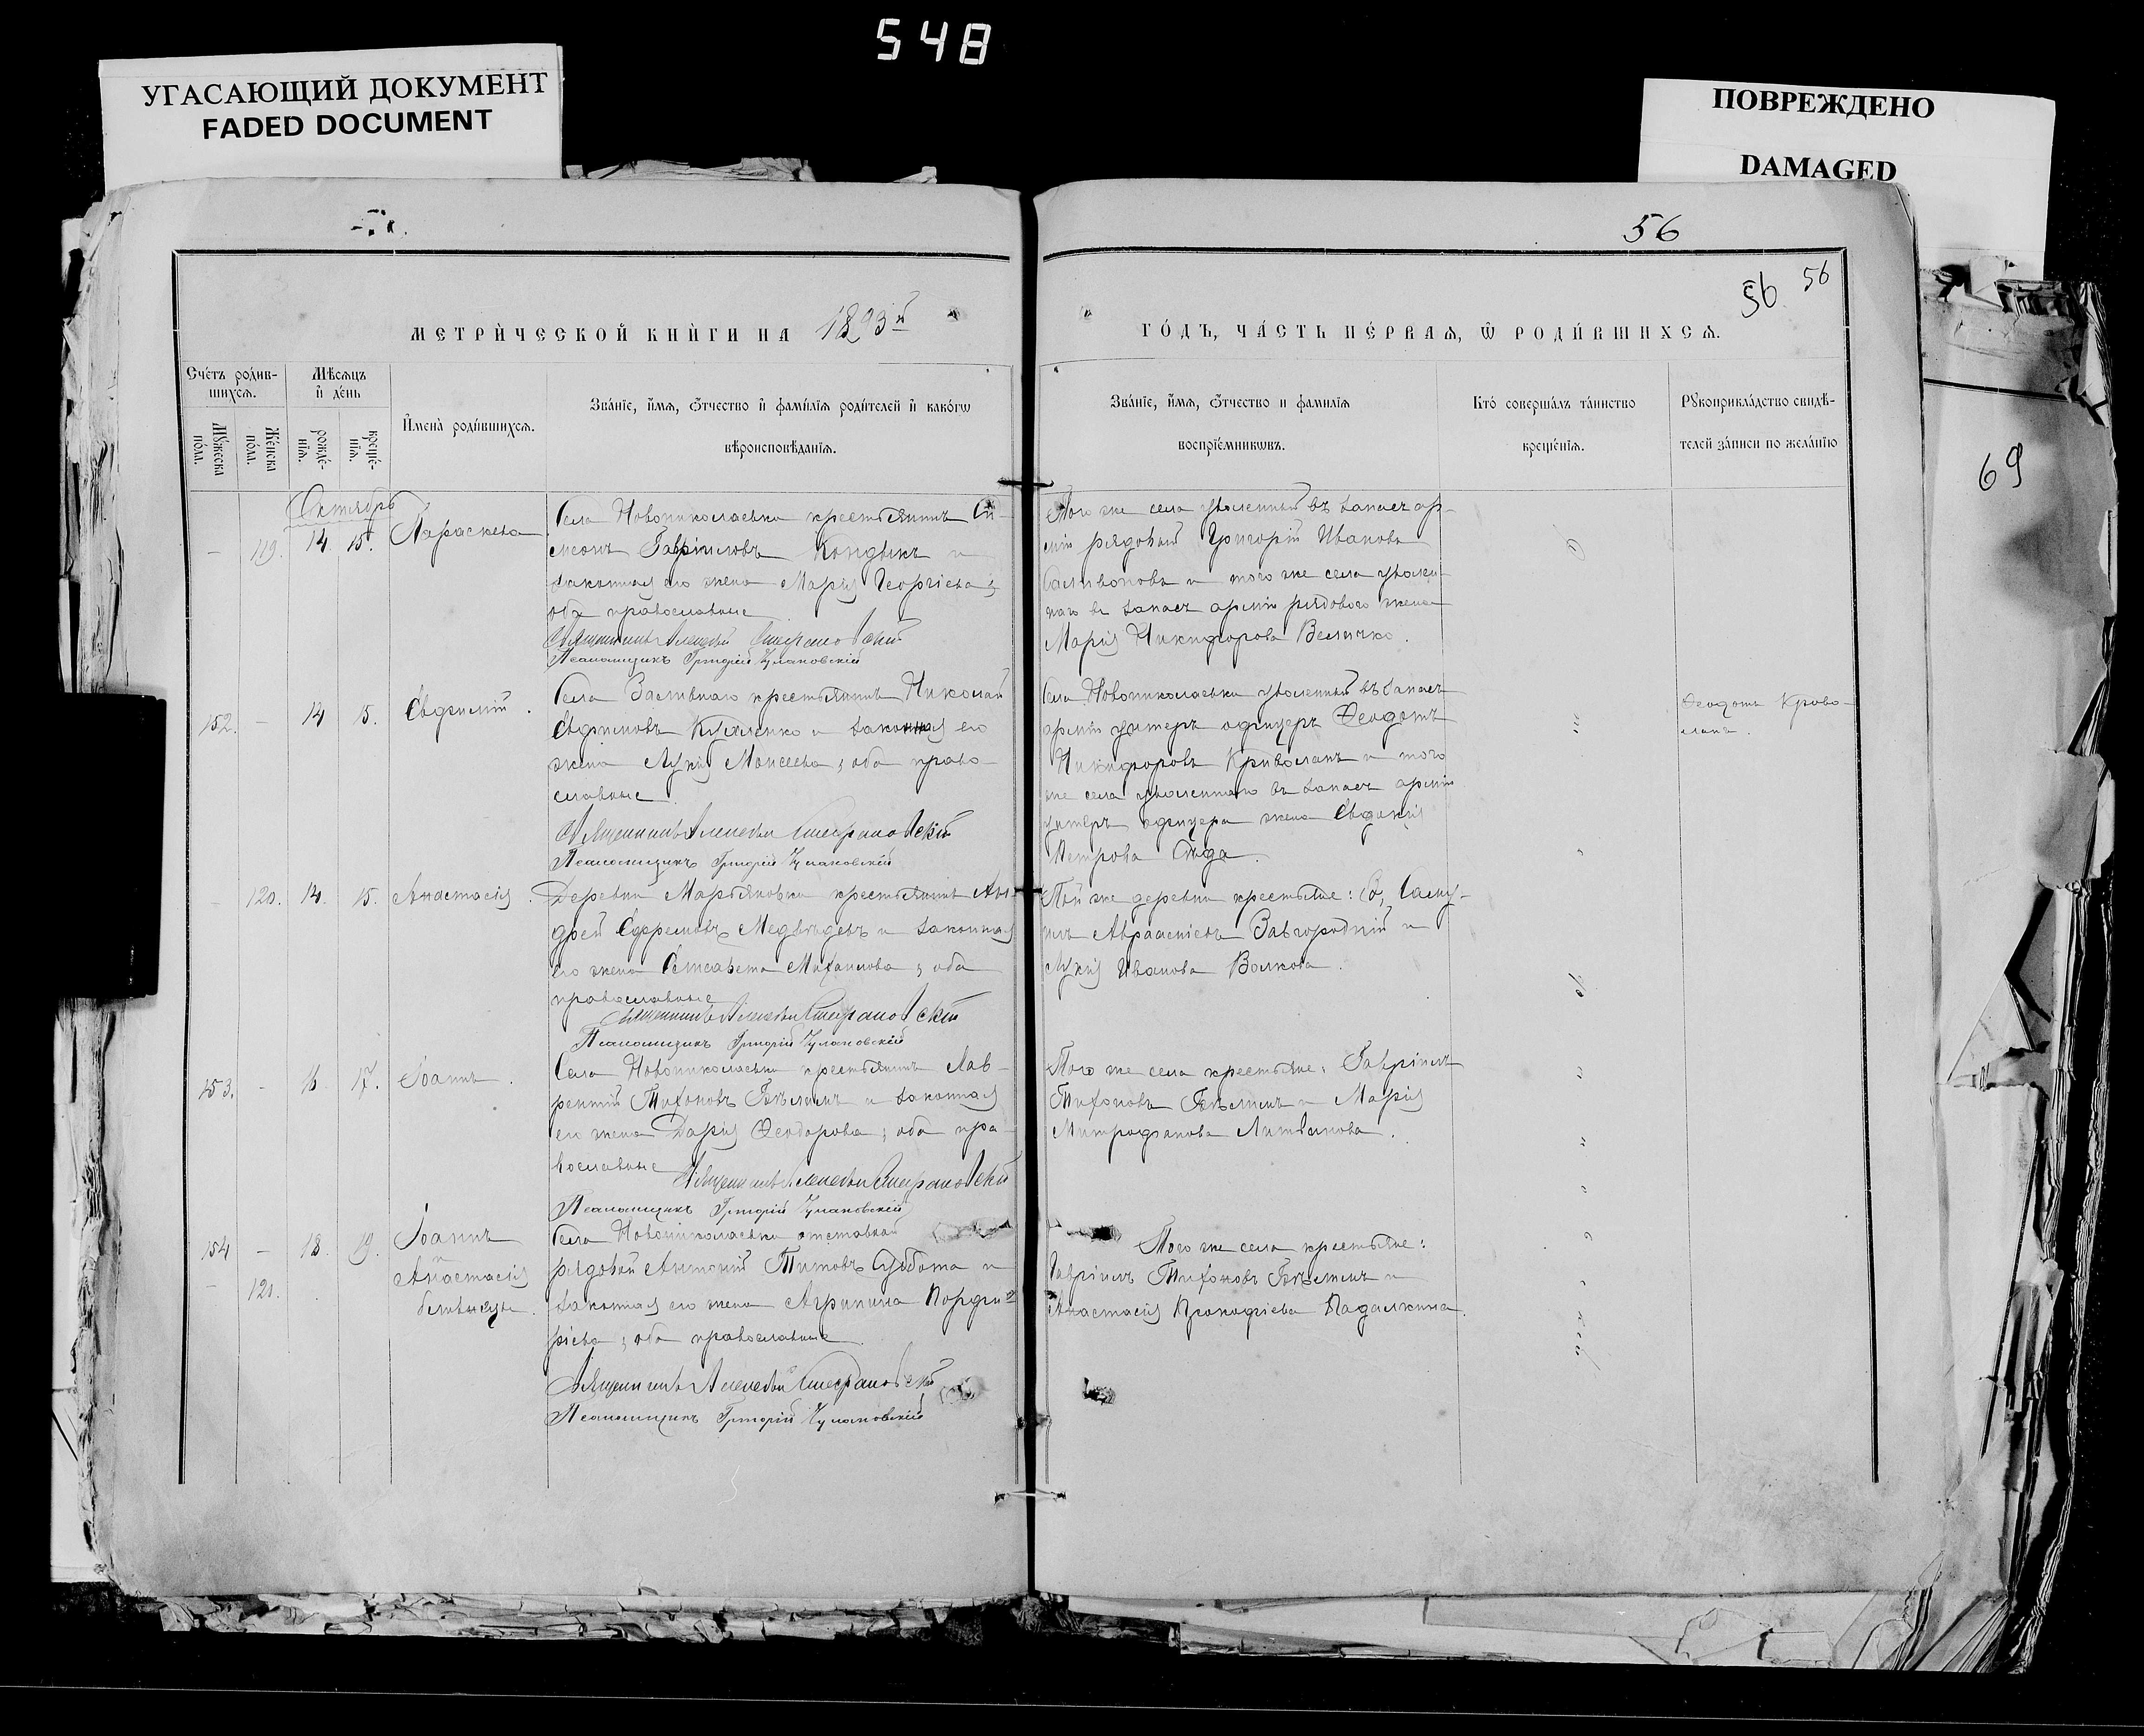 548
УГАСАЮЩИЙ ДОКУМЕНТ
FADED DOCUMENT
ПОВРЕЖДЕНО
DAMAGED
56
56
56
69
МЕТРИ́ЧЕСКОЙ КНИ́ГИ НА 1893й
ГО́ДЪ, ЧА́СТЬ ПЕ́РВАѦ, Ѡ РОДИ́ВШИХСѦ.
Сче́тъ роди́в-
шихсѧ.
Мѣ́сѧцъ
и҆ де́нь
Мꙋ́жеска
по́ла.
Же́нска
по́ла.
рожде́-
нїѧ.
креще́-
нїѧ.
И҆мена̀ роди́вшихсѧ.
Зва́нїе, и҆́мѧ, ѻ҆́тчество и҆ фами́лїѧ роди́телей и҆ како́гѡ
вѣроисповѣ́данїѧ.
Зва́нїе, и҆́мѧ, ѻ҆́тчество и фами́лїѧ
воспрїе́мникѡвъ.
Кто̀ соверша́лъ та́инство
креще́нїѧ.
Рꙋкоприкла́дство свидѣ́-
телей за́писи по жела́нїю
Октябрь
- 119. 14. 15. Параскева
Села Новониколаевки крестьянинъ Си-
меонъ Гавріиловъ Кондыкъ и
законная его жена Марія Георгіева;
оба православные
Священникъ Алексѣй Стефановскій
Псаломщикъ Григорій Чулановскій
Того же села уволенный въ запасъ ар-
міи рядовой Григорій Ивановъ
и того же села уволен-
наго въ запасъ арміи рядового жена
Марія Никифорова Величко.
152. - 14 15. Евфимій.
Села Заливнаго крестьянинъ Николай
Евфимовъ и законная его
жена Лукія Моисеева; оба право-
славные.
Священникъ Алексѣй Стефановскій
Псаломщикъ Григорій Чулановскій
Села Новониколаевки уволенный въ запасъ
арміи унтеръ офицеръ Ѳеодотъ
Никифоровъ Криволапъ и того
же села уволеннаго въ запасъ арміи
унтеръ офицера жена Евдокія
Петрова.
Ѳеодотъ Криво-
лапъ.
- 120. 14. 15. Анастасія.
Деревни Марьяновки крестьянинъ Ан-
дрей Ефремовъ Медвѣдевъ и законная
его жена Елисавета Михаилова; оба
православные
Священникъ Алексѣй Стефановскій
Псаломщикъ Григорій Чулановскій
Той же деревни крестьяне: Саму-
илъ Авраамiевъ Завгородній и
Лукія Иванова Волкова.
153. - 16 17. Іоаннъ.
Села Новониколаевки крестьянинъ Лав-
рентій Тихоновъ Бѣликъ и законная
его жена Дарія Ѳеодорова; оба пра-
вославные
Священникъ Алексѣй Стефановскій
Псаломщикъ Григорій Чулановскій
Того же села крестьяне: Гавріилъ
Тихоновъ Бѣликъ и Марія
Митрофанова Литвинова.
154 - 18. 19. Іоаннъ
и
- 121. Анастасія
близнецы.
Села Новониколаевки отставной
рядовой Антоній Титовъ Суббота и
законная его жена Агрипина Порфи-
ріева; оба православные
Священникъ Алексѣй Стефановскій
Псаломщикъ Григорій Чулановскій
Того же села крестьяне:
Гавріилъ Тихоновъ Бѣликъ и
Анастасія Прокофіева Падалкина.